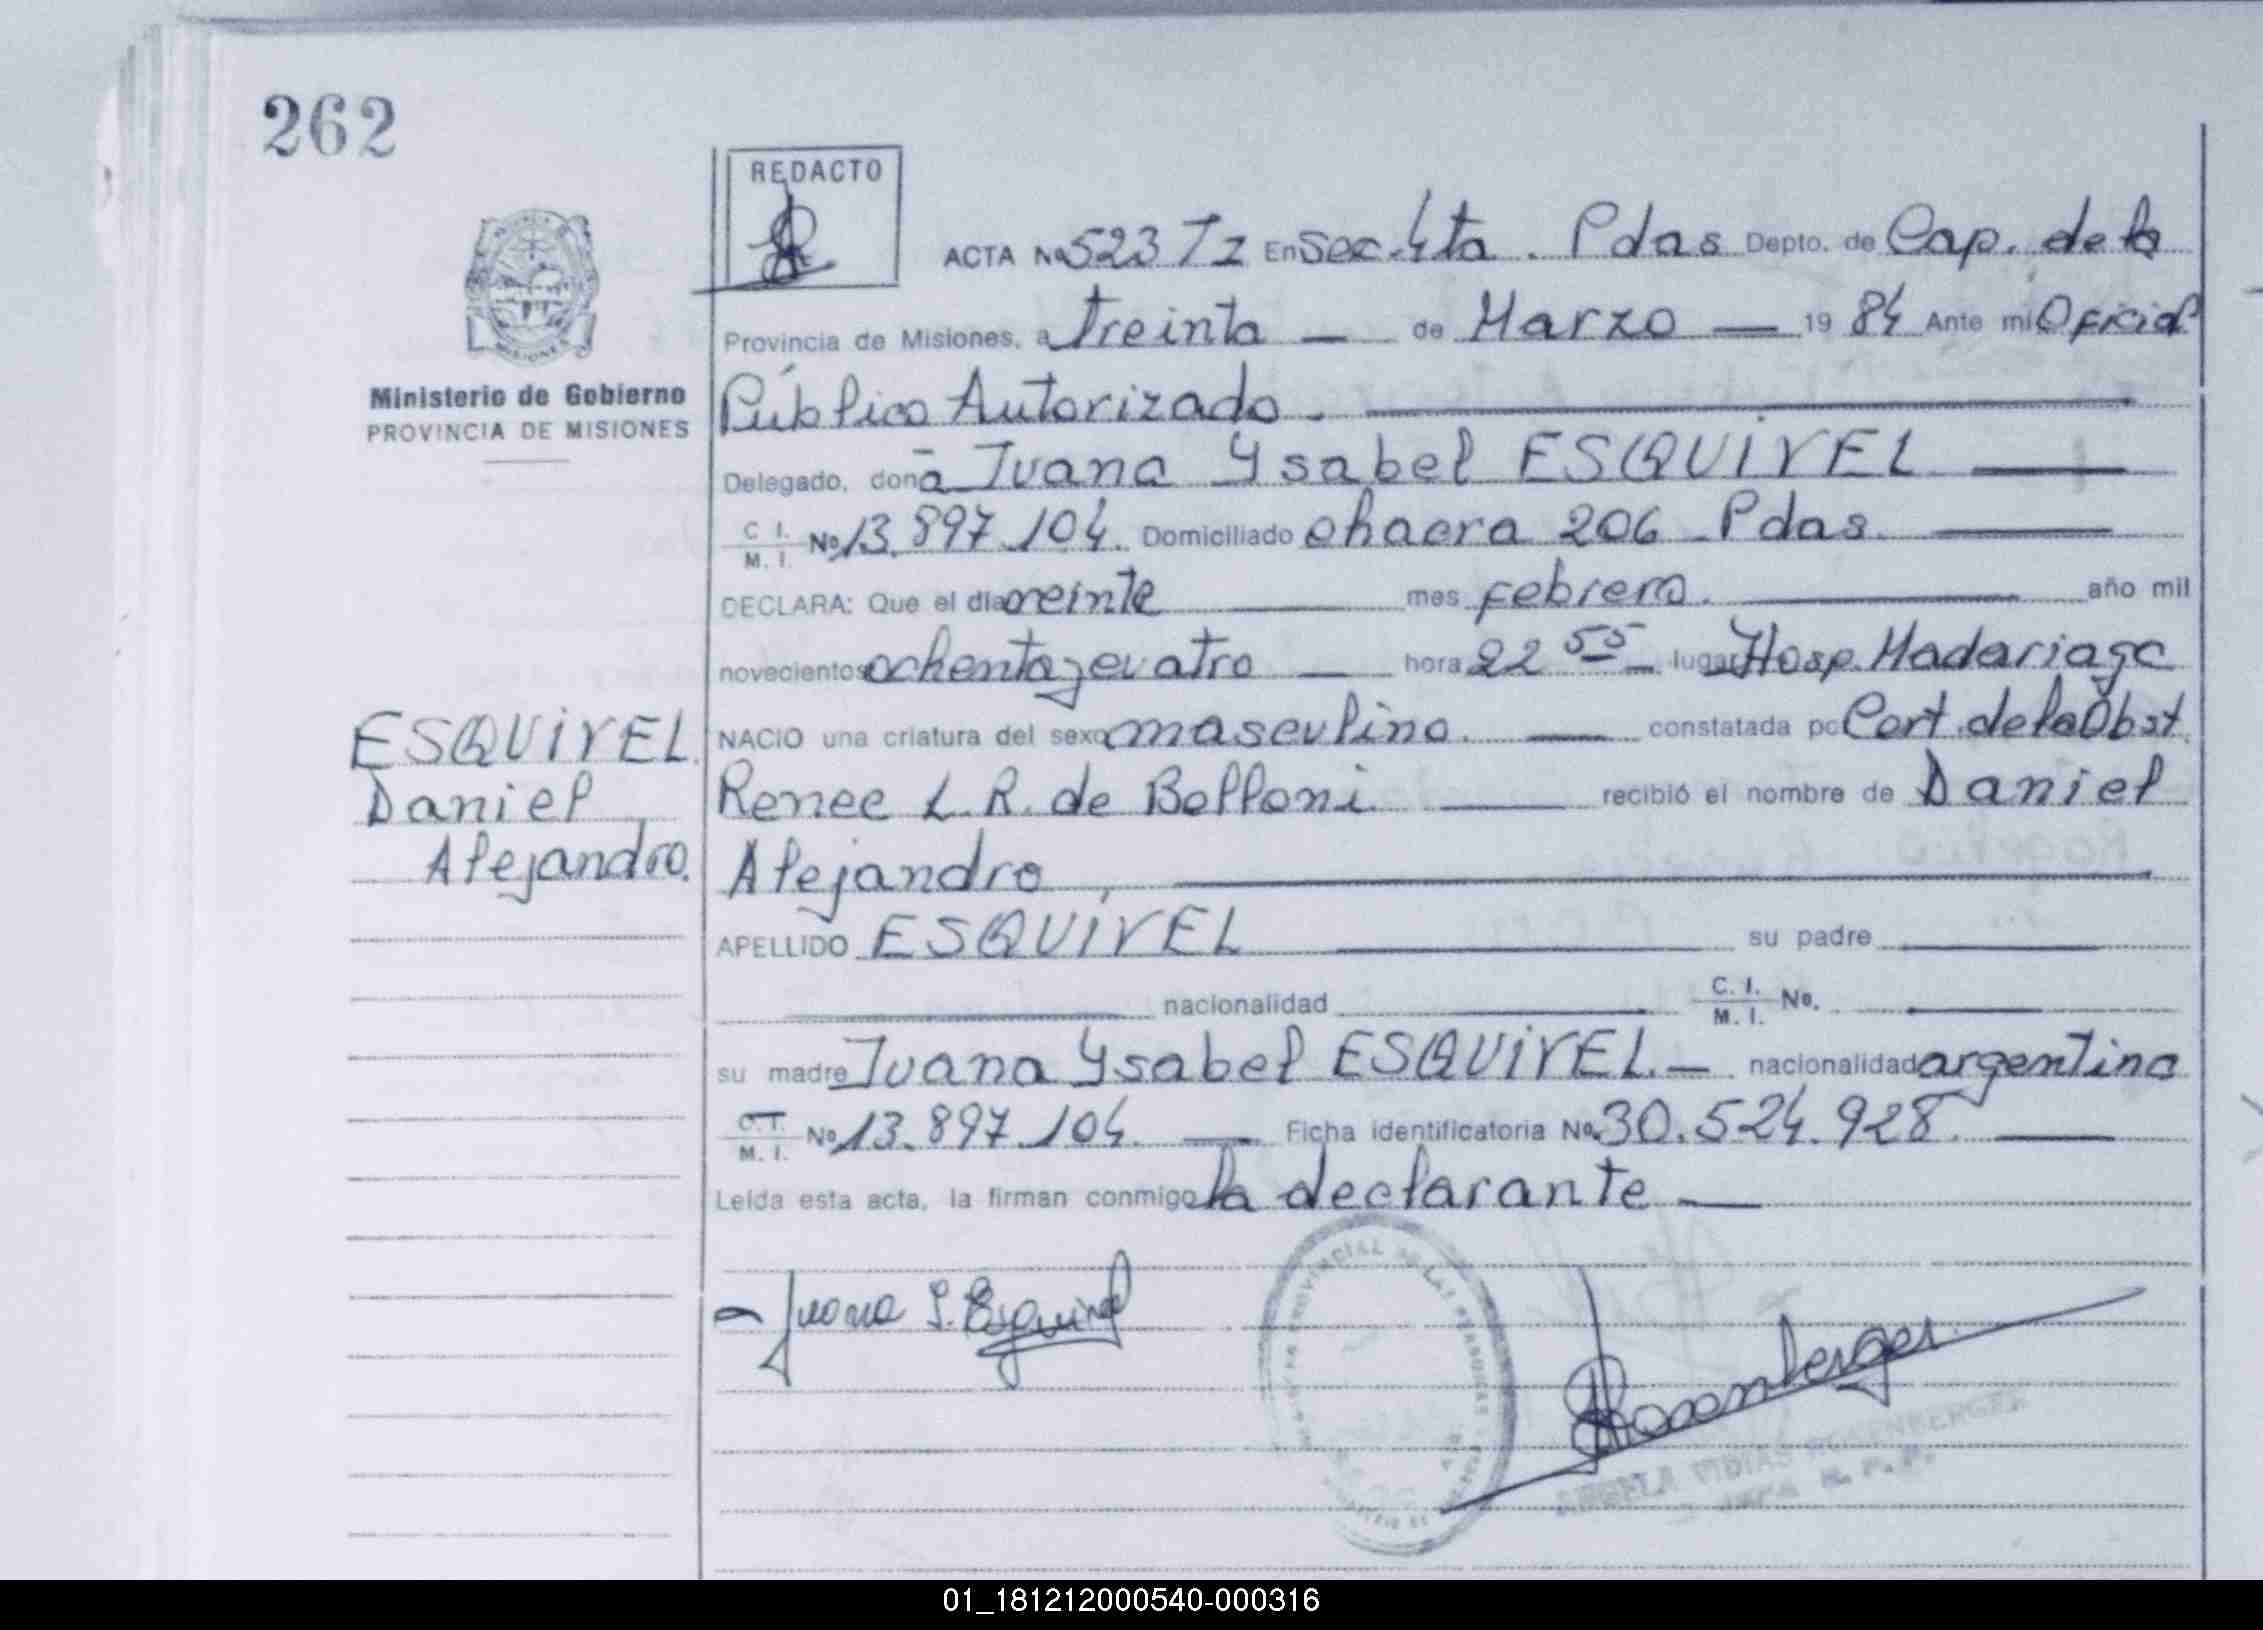 262
REDACTO
ACTA No 523 Tz En Sec. 4ta. Pdas Depto. de Cap. de la
Provincia de Misiones, a treinta — de Marzo — 19 84 Ante mi Oficial
Público Autorizado. —
Ministerio de Gobierno
PROVINCIA DE MISIONES
Delegado, doña Juana Ysabel ESQUIVEL —
C. I.
M. I. No 13.897.104. Domiciliado chacra 206 - Pdas. —
DECLARA: Que el día veinte — mes febrero. — año mil
novecientos ochenta y cuatro — hora 22 55 — lugar Hosp. Madariaga
NACIO una criatura del sexo masculino. — constatada po Cert. de la Obst.
Renee L. R. de Belloni — recibió el nombre de Daniel
Alejandro, —
ESQUIVEL.
Daniel
Alejandro.
APELLIDO ESQUIVEL — su padre —
— nacionalidad — C. I.
M. I. No. —
su madre Juana Ysabel ESQUIVEL. — nacionalidad argentina
C. I.
M. I. No 13.897.104. — Ficha identificatoria No. 30.524.928. —
Leída esta acta, la firman conmigo la declarante —
- Juana I. Esquivel
Rosenberger
VIDIAS ROSENBERGER
01_181212000540-000316